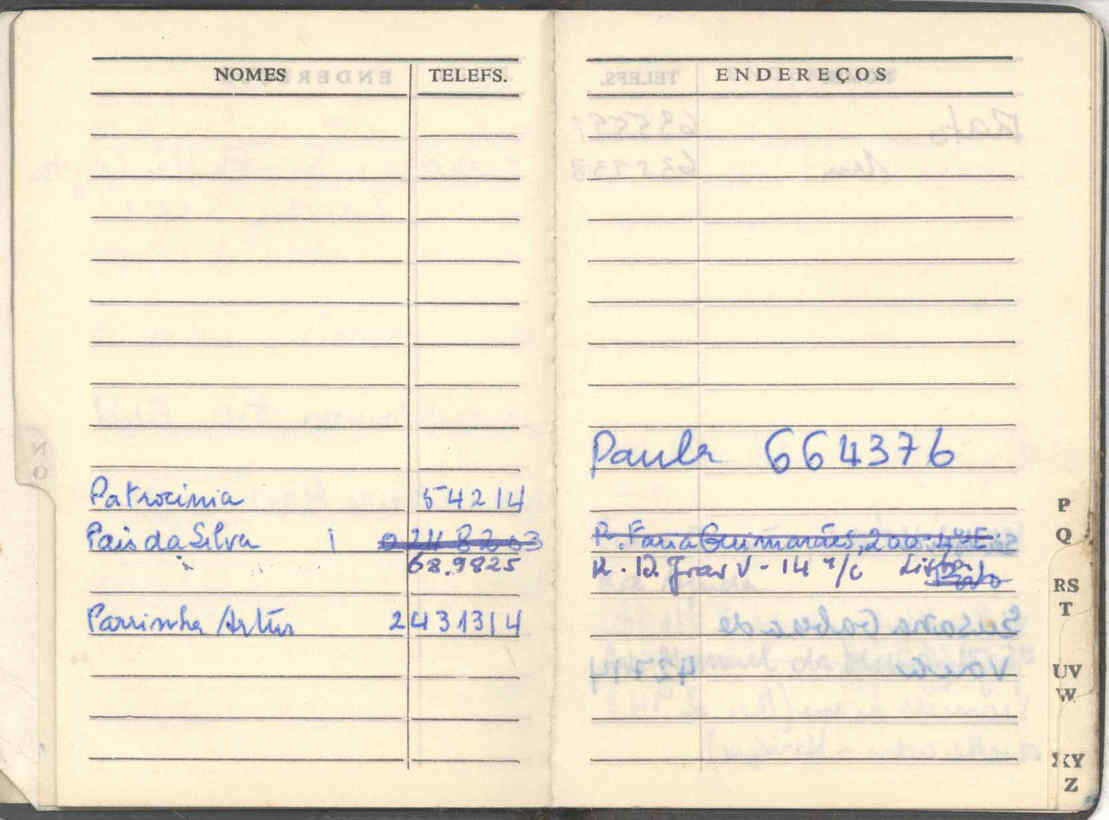 NOMES TELEFS.
Patrocinia 54214
Pais da Silva
68.9825
Parrinha Artur 2431314
ENDEREÇOS
Paula 664376
R. Faria Guimarães, 200-4º E.
R. D. João V - 14 r/c Lisboa
P
Q
RS
T
UV
W
XY
Z